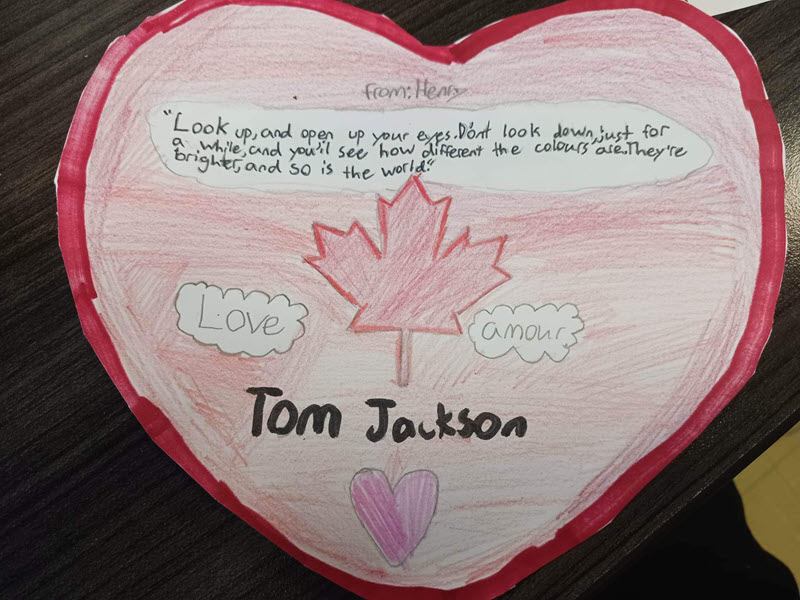 from: Henry
"Look up, and open up your eyes. Don't look down, just for
a while, and you'll see how different the colours are. They're
brighter, and so is the world."
Love
amour
Tom Jackson